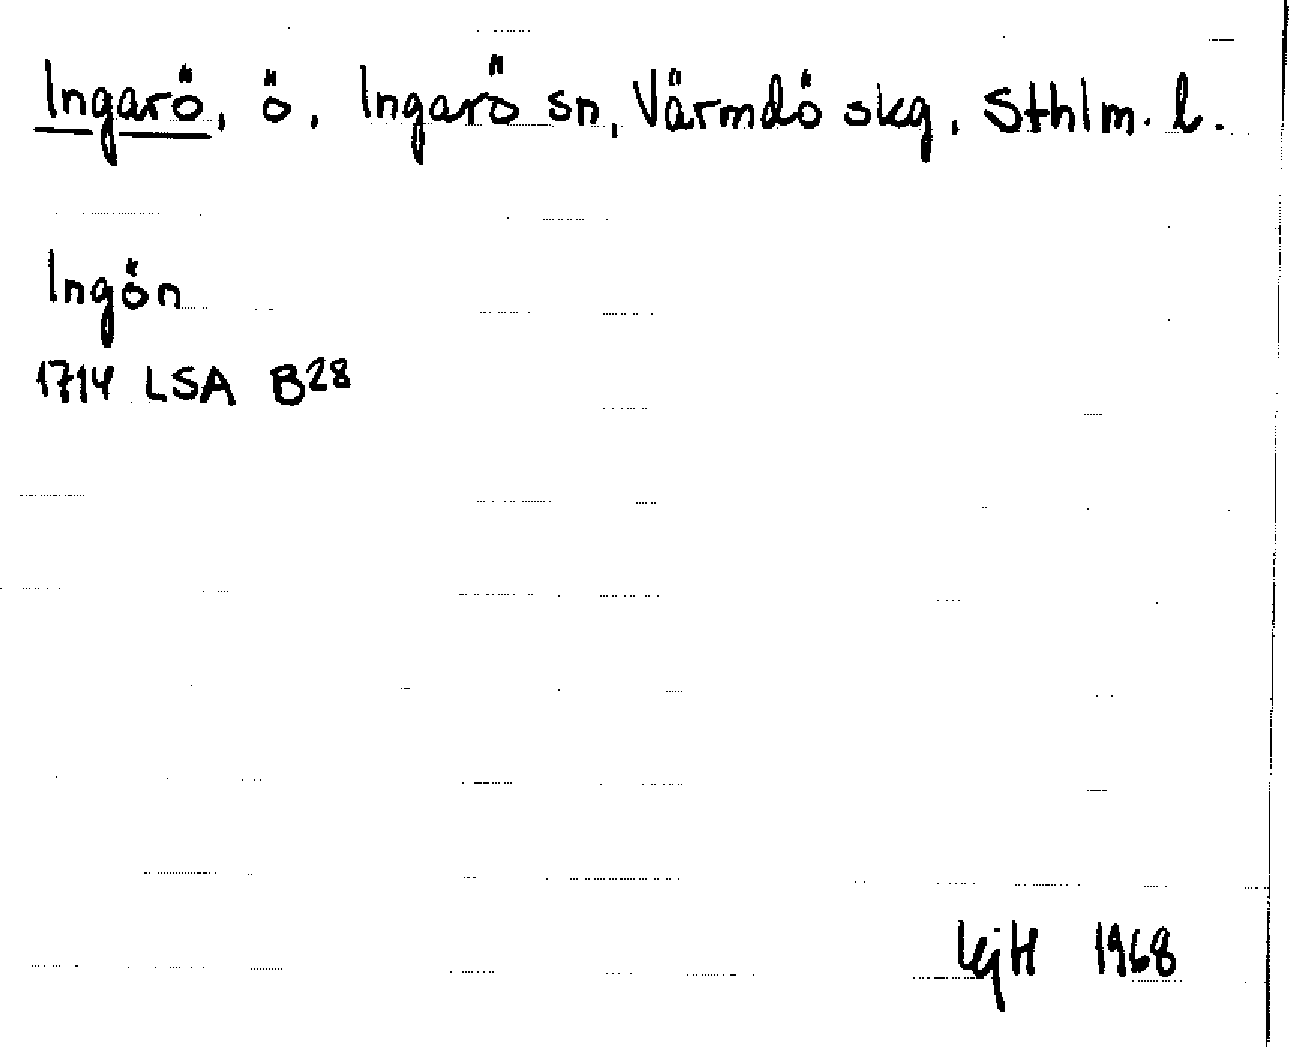 Ingarö, ö, Ingarö sn, Värmdö skg, Sthlm. l.
Ingön
1714 LSA B28
KjH 1968